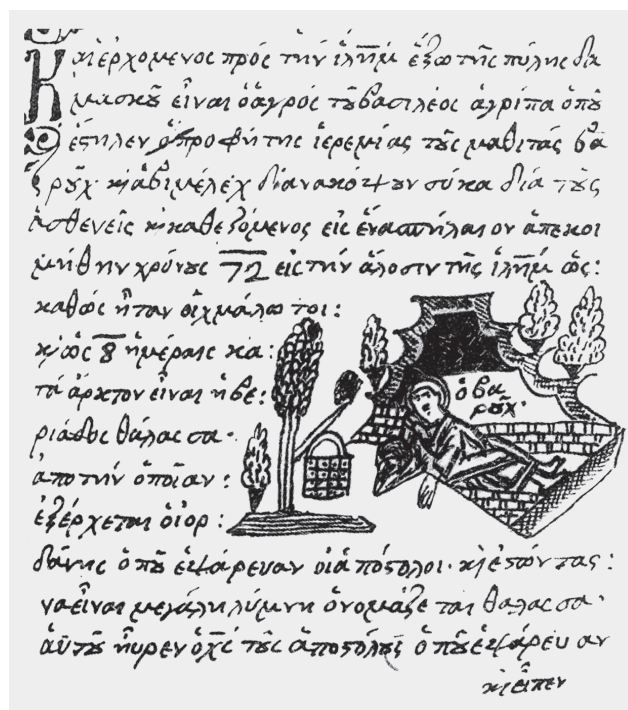 Καὶ ἐρχόμενος πρός τὴν ἱλη̅μ̅ ἔξω τῆς πύλης δα
μασκοῦ εἶναι ὁ ἀγρός τοῦ βασιλέος ἀγρίπα ὁποῦ
ἔστηλεν ὁ προφήτης ἱερεμίας τοὺς μαθιτάς βα
ροῦχ κὶ ἀβιμέλεχ διὰ νὰ κόψουν σύκα διὰ τοὺς
ἀσθενεῖς κὶ καθεζόμενος εἰς ἕνα σπήλαιον ἀπεκοι
μήθην χρόνους 72 εἰς τὴν ἅλοσιν τῆς ἱλη̅μ̅ ὡς:
καθώς ἦταν οἰχμάλωτοι:
κὶ ὡς 8 ἡμέραις κα:
τὰ ἄρκτον εἶναι ἡ βε:
ριάδος θάλασσα·
ἀπο τὴν ὁποῖαν:
ἐξέρχεται ὁ ἰορ:
δάνης ὁποῦ ἐψάρευαν οἱ ἀπόστολοι· κὶ ἐστόντας:
να εἶναι μεγάλη λύμνη ὀνομάζεται θάλασσα·
αὐτοῦ ηὗρεν ὁ χ̅ς̅ τοὺς ἀποστόλους ὁποῦ ἐψάρευαν
κὶ εἶπεν
ὁ βα
ροῦχ·